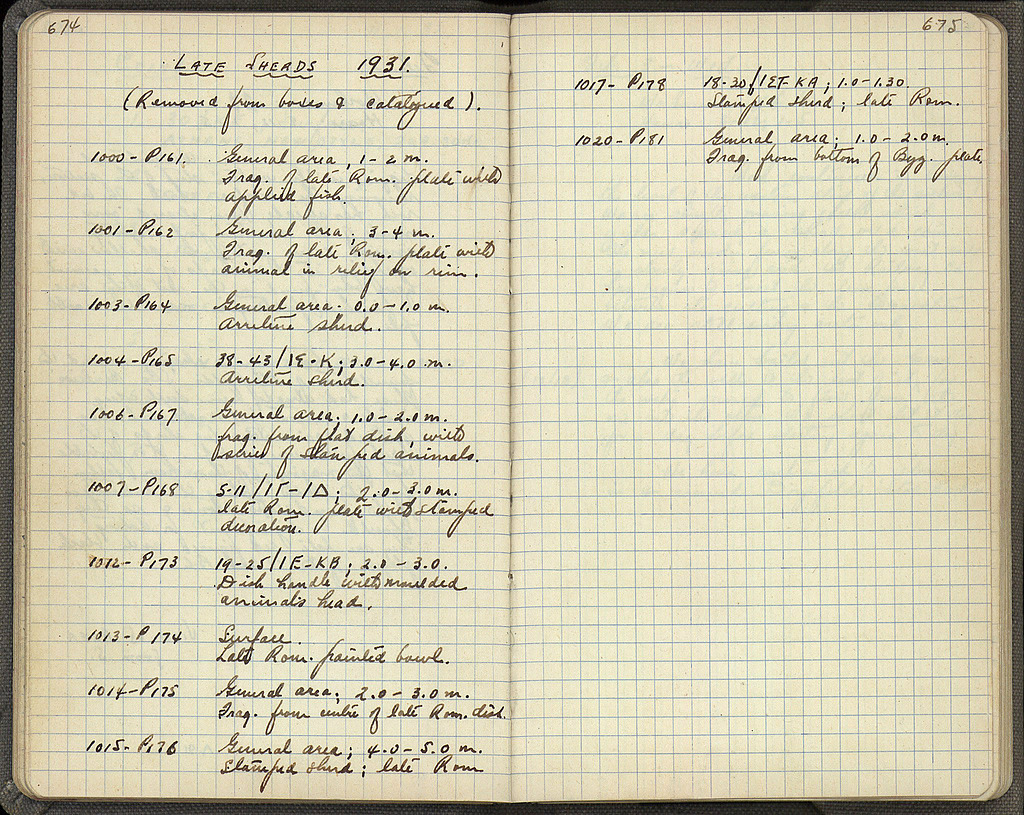 674
LATE SHERDS 1931.
(Removed from boxes & catalogued).
1000-P161. General area, 1-2 m.
Frag. of late Rom. plate with
applied fish.
1001-P162 General area; 3-4 m.
Frag. of late Rom. plate with
animal in relief on rim.
1003-P164 General area. 0.0-1.0 m.
Arretine sherd.
1004-P165 38-43/ΙΣ-Κ; 3.0-4.0 m.
Arretine sherd.
1006-P167 General area; 1.0-2.0 m.
frag. from flat dish, with
series of stamped animals.
1007-P168 5-11/ΙΓ-ΙΔ; 2.0-3.0 m.
late Rom. plate with stamped
decoration.
1012-P173 19-25/ΙΕ-ΚΒ; 2.0-3.0.
Dish handle with moulded
animal's head.
1013-P174 Surface.
Late Rom. painted bowl.
1014-P175 General area; 2.0-3.0 m.
Frag. from centre of late Rom. dish.
1015-P176 General area; 4.0-5.0 m.
Stamped sherd; late Rom
675
1017-P178 18-30/ΙΣΤ-ΚΑ; 1.0-1.30.
Stamped sherd; late Rom.
1020-P181 General area; 1.0-2.0 m.
Frag. from bottom of Byz. plate.